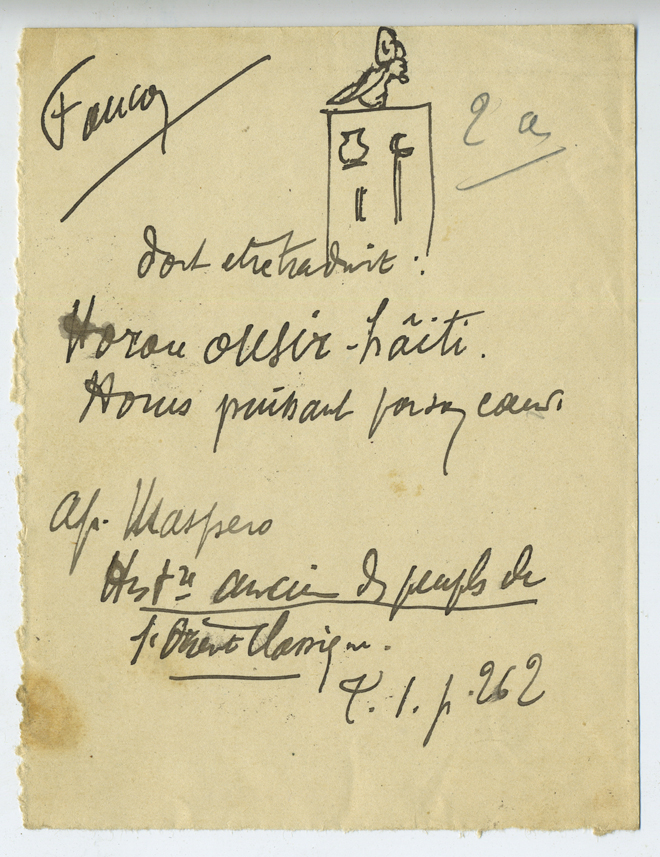 Faucon
2 a
doit etre traduit :
Horou ousir-hâiti.
Horus puissant par son coeur.
Ap. Maspero
Histre ancien des peuples de
l'Orient Classique.
T. 1. p. 262